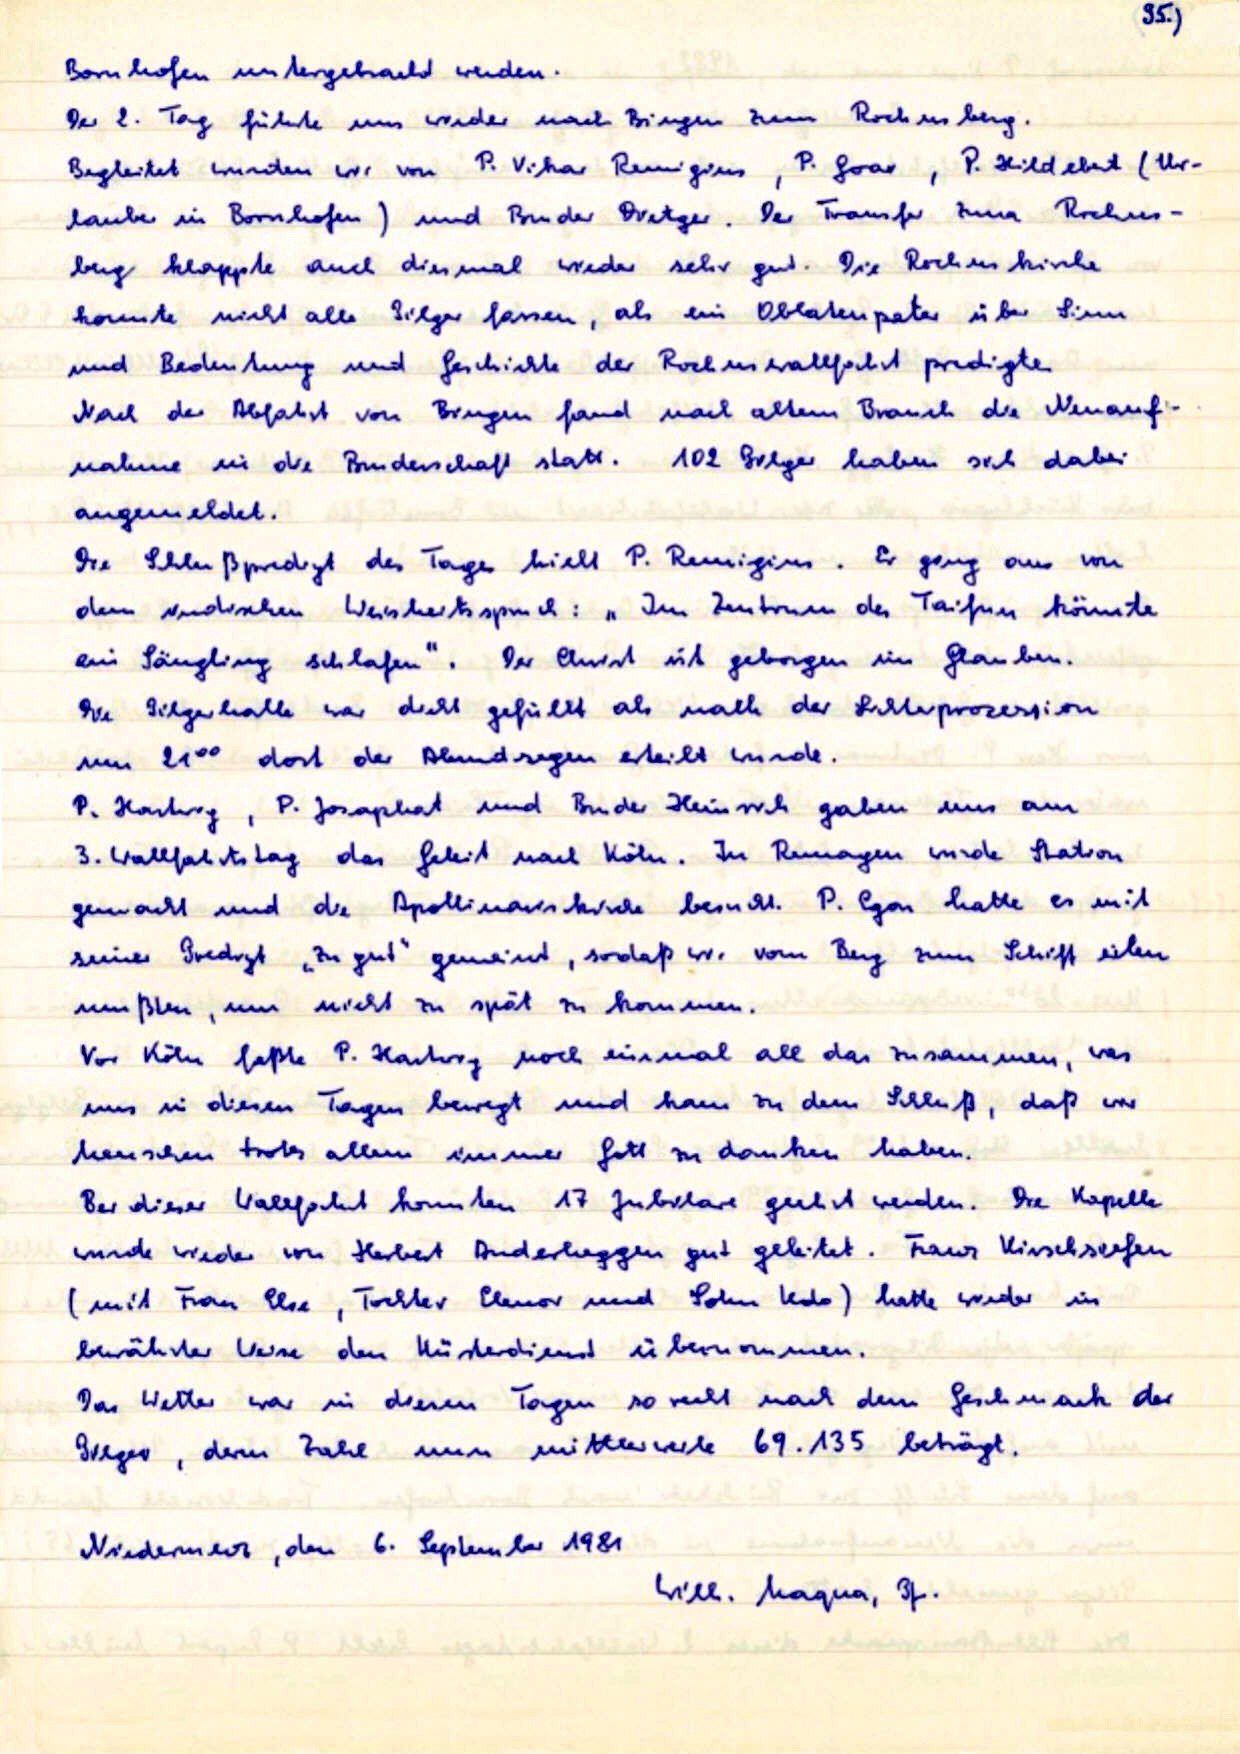 (95.)
Bornhofen untergebracht werden.
Der 2. Tag führte uns wieder nach Bingen zum Rochusberg.
Begleitet wurden wir von P. Vikar Remigius, P. Goar, P. Hildebert (Ur-
lauber in Bornhofen) und Bruder Rutger. Der Transfer zum Rochus-
berg klappte auch diesmal wieder sehr gut. Die Rochuskirche
konnte nicht alle Pilger fassen, als ein Oblatenpater über Sinn
und Bedeutung und Geschichte der Rochuswallfahrt predigte.
Nach der Abfahrt von Bingen fand nach altem Brauch die Neuauf-
nahme in die Bruderschaft statt. 102 Pilger haben sich dabei
angemeldet.
Die Schlußpredigt des Tages hielt P. Remigius. Er ging aus von
dem indischen Weisheitsspruch: „Im Zentrum des Taifun könnte
ein Säugling schlafen". Der Christ ist geborgen im Glauben.
Die Pilgerhalle war dicht gefüllt als nach der Lichterprozession
um 21⁰⁰ dort der Abendsegen erteilt wurde.
P. Hartwig, P. Josaphat und Bruder Heinrich gaben uns am
3. Wallfahrtstag das Geleit nach Köln. In Remagen wurde Station
gemacht und die Apollinariskirche besucht. P. Egon hatte es mit
seiner Predigt „zu gut" gemeint, sodaß wir vom Berg zum Schiff eilen
mußten, um nicht zu spät zu kommen.
Vor Köln faßte P. Hartwig noch einmal all das zusammen, was
uns in diesen Tagen bewegt und kam zu dem Schluß, daß wir
Menschen trotz allem immer Gott zu danken haben.
Bei dieser Wallfahrt konnten 17 Jubilare geehrt werden. Die Kapelle
wurde wieder von Herbert Anderheggen gut geleitet. Franz Kirschsiefen
(mit Frau Else, Tochter Elenor und Sohn Udo) hatte wieder in
bewährter Weise den Küsterdienst übernommen.
Das Wetter war in diesen Tagen so recht nach dem Geschmack der
Pilger, deren Zahl nun mittlerweile 69.135 beträgt.
Niedermerz, den 6. September 1981
Will. Maqua, Pf.